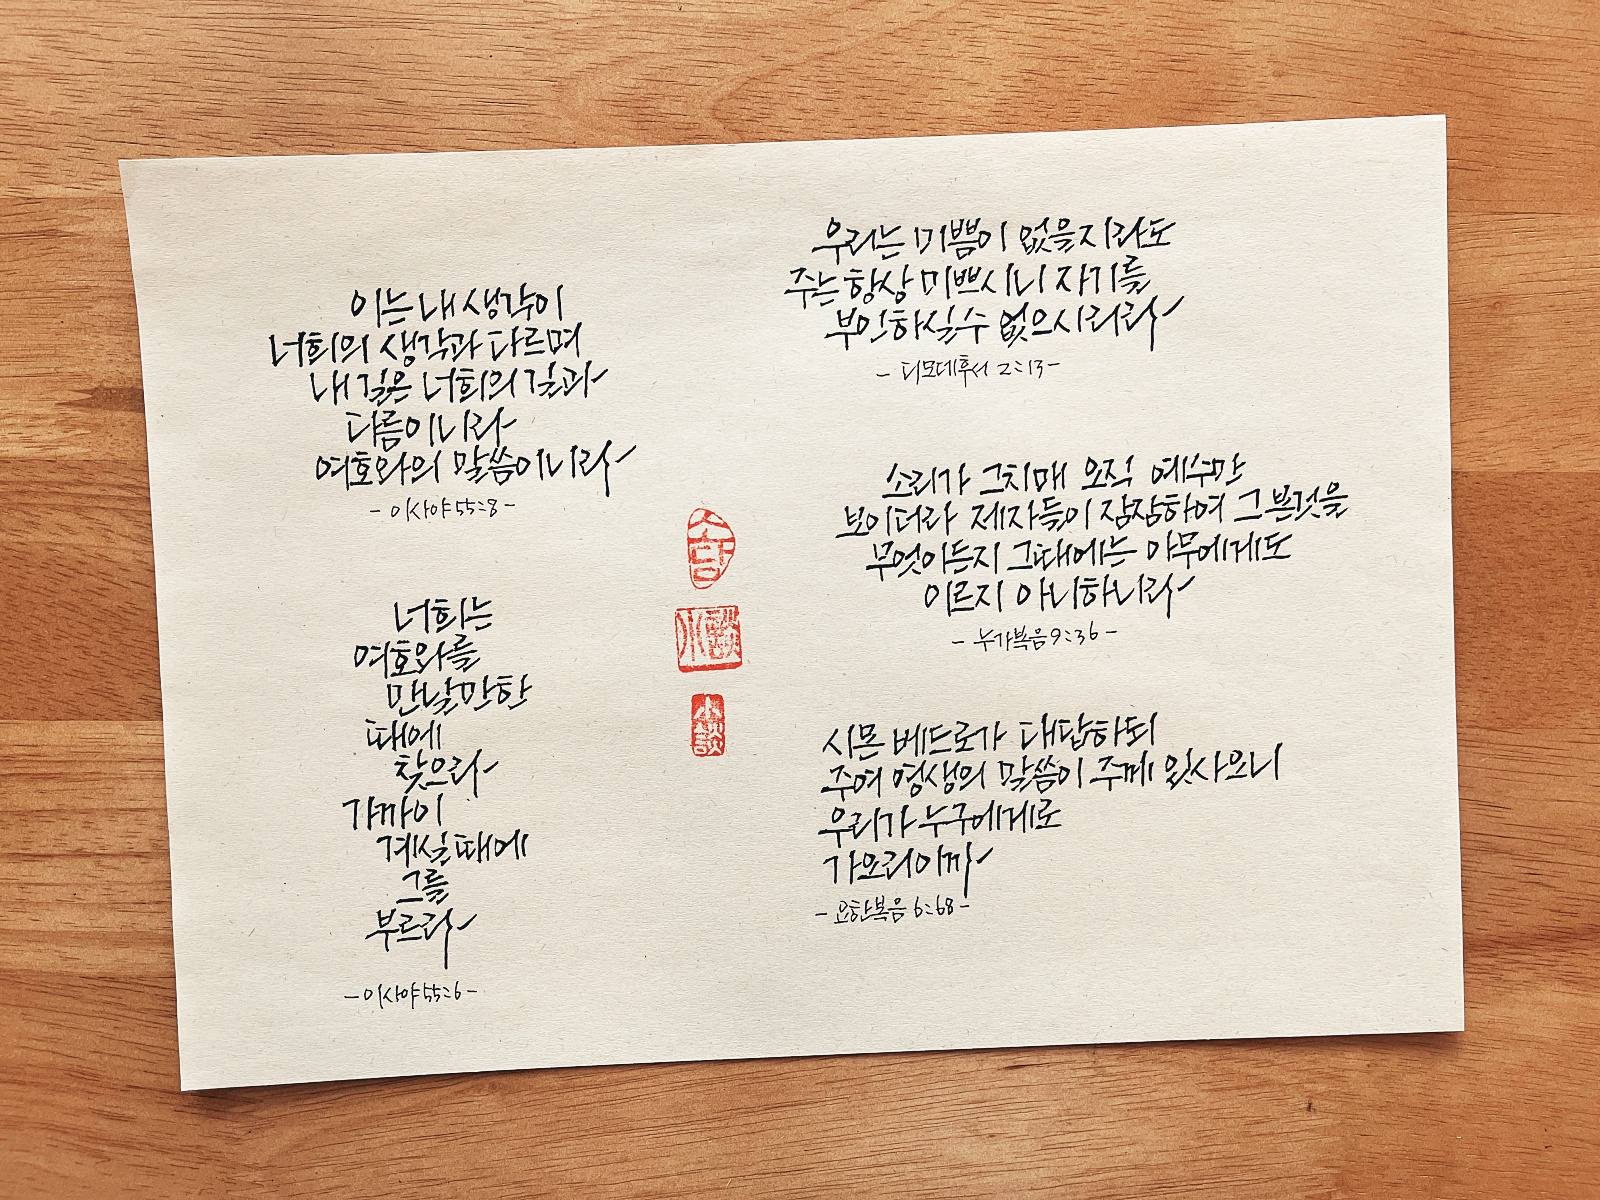 이는 내 생각이
너희의 생각과 다르며
내 길은 너희의 길과
다름이니라
여호와의 말씀이니라
- 이사야 55:8 -
너희는
여호와를
만날만한
때에
찾으라
가까이
계실때에
그를
부르라
- 이사야 55:6 -
소담
小談
小談
우리는 미쁨이 없을지라도
주는 항상 미쁘시니 자기를
부인하실수 없으시리라
- 디모데후서 2:13 -
소리가 그치매 오직 예수만
보이더라 제자들이 잠잠하여 그 본것을
무엇이든지 그때에는 아무에게도
이르지 아니하니라
- 누가복음 9:36 -
시몬 베드로가 대답하되
주여 영생의 말씀이 주께 있사오니
우리가 누구에게로
가오리이까
- 요한복음 6:68 -